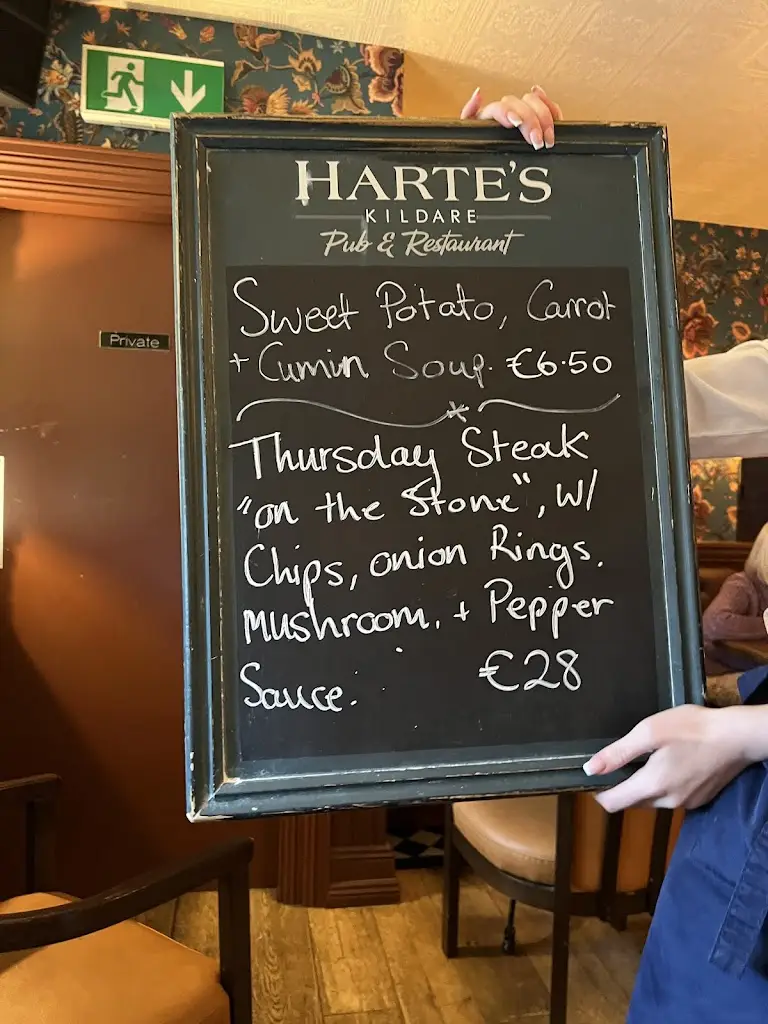 HARTE'S
KILDARE
Pub & Restaurant
Private
Sweet Potato, Carrot
+ Cumin Soup. €6.50
Thursday Steak
"on the Stone", w/
Chips, onion Rings.
Mushroom. + Pepper
Sauce. €28